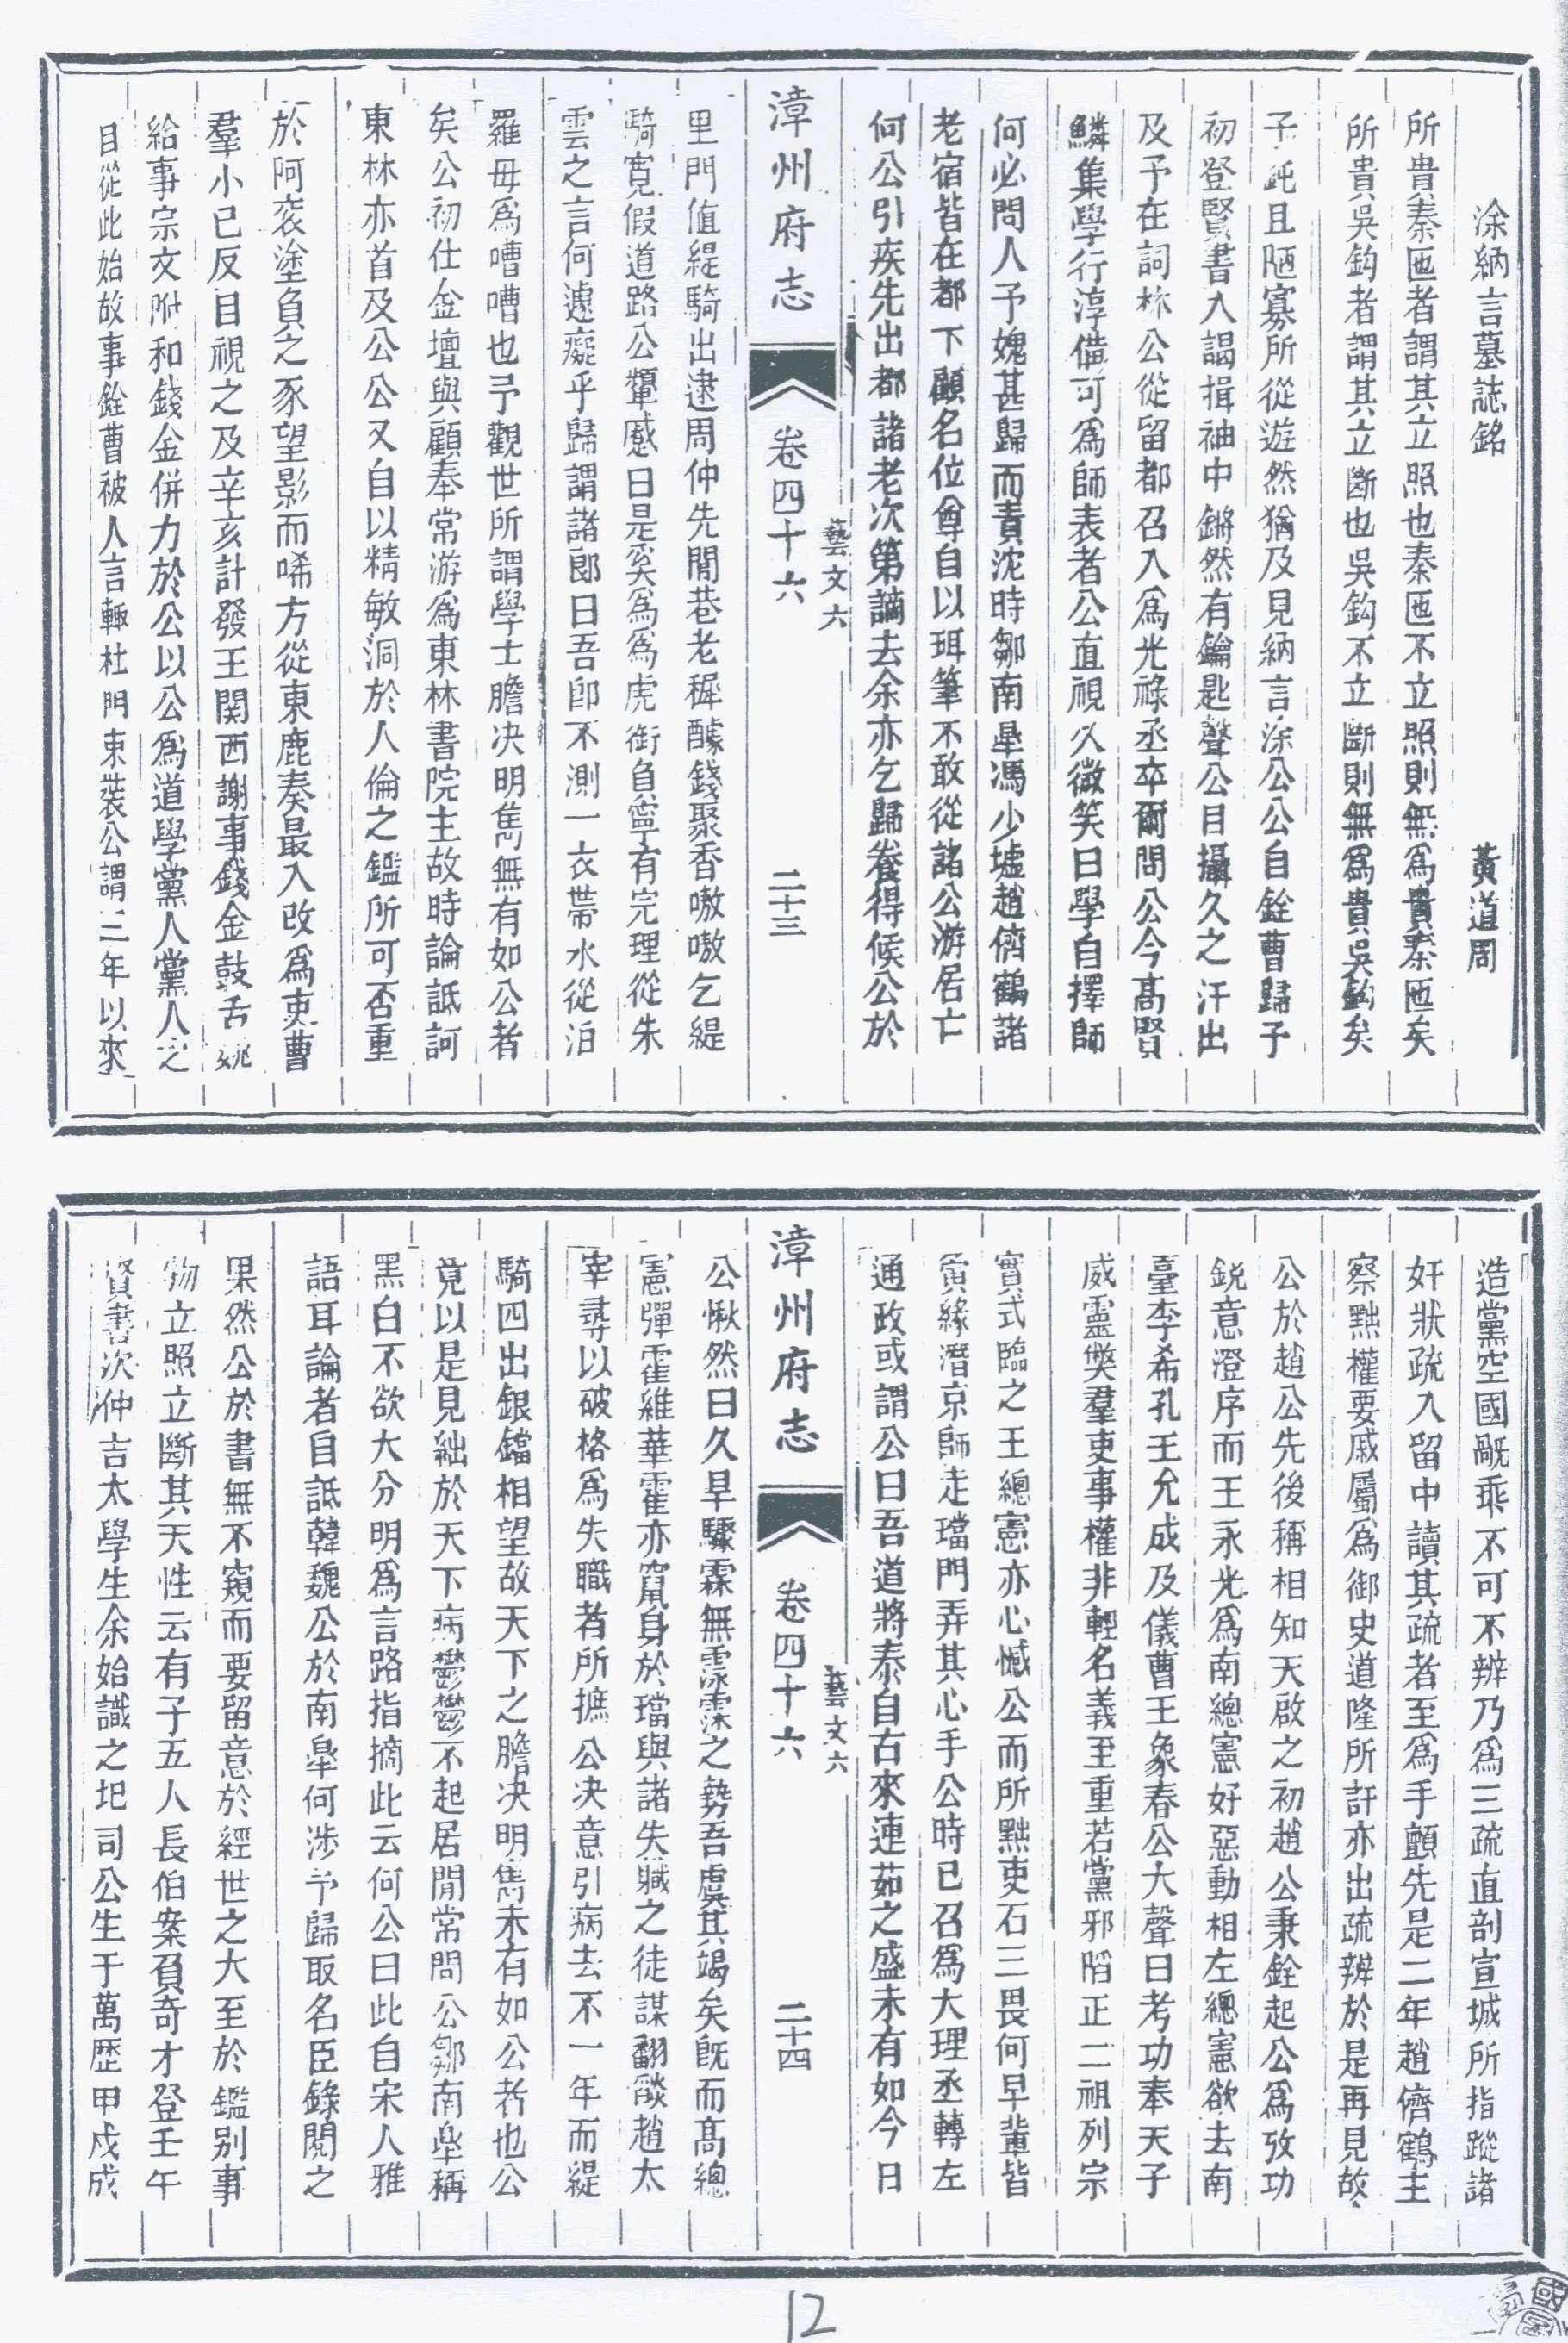 涂納言墓誌銘 黃道周
所貴秦匜者謂其立照也秦匜不立照則無為貴秦匜矣
所貴吳鈎者謂其立斷也吳鈎不立斷則無為貴吳鈎矣
予鈍且陋寡所從遊然猶及見納言涂公公自銓曹歸予
初登賢書入謁揖袖中鏘然有鑰匙聲公目攝久之汗出
及予在詞林公從留都召入爲光祿丞卒爾問公今高賢
鱗集學行淳備可爲師表者公直視久微笑曰學自擇師
何必問人予媿甚歸而責沈時鄒南臯馮少墟趙儕鶴諸
老宿皆在都下顧名位尊自以珥筆不敢從諸公游居亡
何公引疾先出都諸老次第謫去余亦乞歸養得候公於
漳州府志 卷四十六 藝文六 二十三
里門值緹騎出逮周仲先閭巷老穉醵錢聚香嗷嗷乞緹
騎寬假道路公顰慼曰是奚爲爲虎銜負寧有完理從朱
雲之言何遽癡乎歸謂諸郎曰吾卽不測一衣帶水從汨
羅毋爲嘈嘈也予觀世所謂學士膽决明雋無有如公者
矣公初仕金壇與顧奉常游爲東林書院主故時論詆訶
東林亦首及公公又自以精敏洞於人倫之鑑所可否重
於阿衮塗負之豕望影而唏方從東鹿奏最入改爲吏曹
羣小已反目視之及辛亥計發王関西謝事錢金鼓舌姚
給事宗文附和錢金併力於公以公爲道學黨人黨人之
目從此始故事銓曹被人言輒杜門束裝公謂三年以來
造黨空國毆乖不可不辨乃爲三疏直剖宣城所指蹤諸
奸狀疏入留中讀其疏者至爲手顫先是二年趙儕鶴主
察黜權要戚屬爲御史道隆所訐亦出疏辨於是再見故
公於趙公先後稱相知天啟之初趙公秉銓起公爲攷功
銳意澄序而王永光爲南總憲好惡動相左總憲欲去南
臺李希孔王允成及儀曹王象春公大聲曰考功奉天子
威靈獎羣吏事權非輕名義至重若黨邪陷正二祖列宗
實式臨之王總憲亦心憾公而所黜吏石三畏何早輩皆
夤緣潛京師走璫門弄其心手公時已召爲大理丞轉左
通政或謂公曰吾道將泰自古來連茹之盛未有如今日
漳州府志 卷四十六 藝文六 二十四
公愀然曰久旱驟霖無霡霂之勢吾虞其竭矣旣而高總
憲彈霍維華霍亦竄身於璫與諸失職之徒謀翻燄趙太
宰尋以破格爲失職者所摭公决意引病去不一年而緹
騎四出銀鐺相望故天下之膽决明雋未有如公者也公
竟以是見絀於天下病鬱鬱不起居閒常問公鄒南臯稱
黑白不欲大分明爲言路指摘此云何公曰此自宋人雅
語耳論者自詆韓魏公於南臯何涉予歸取名臣錄閱之
果然公於書無不窺而要留意於經世之大至於鑑别事
物立照立斷其天性云有子五人長伯案負奇才登壬午
賢書次仲吉太學生余始識之圯司公生于萬歷甲戍成
12